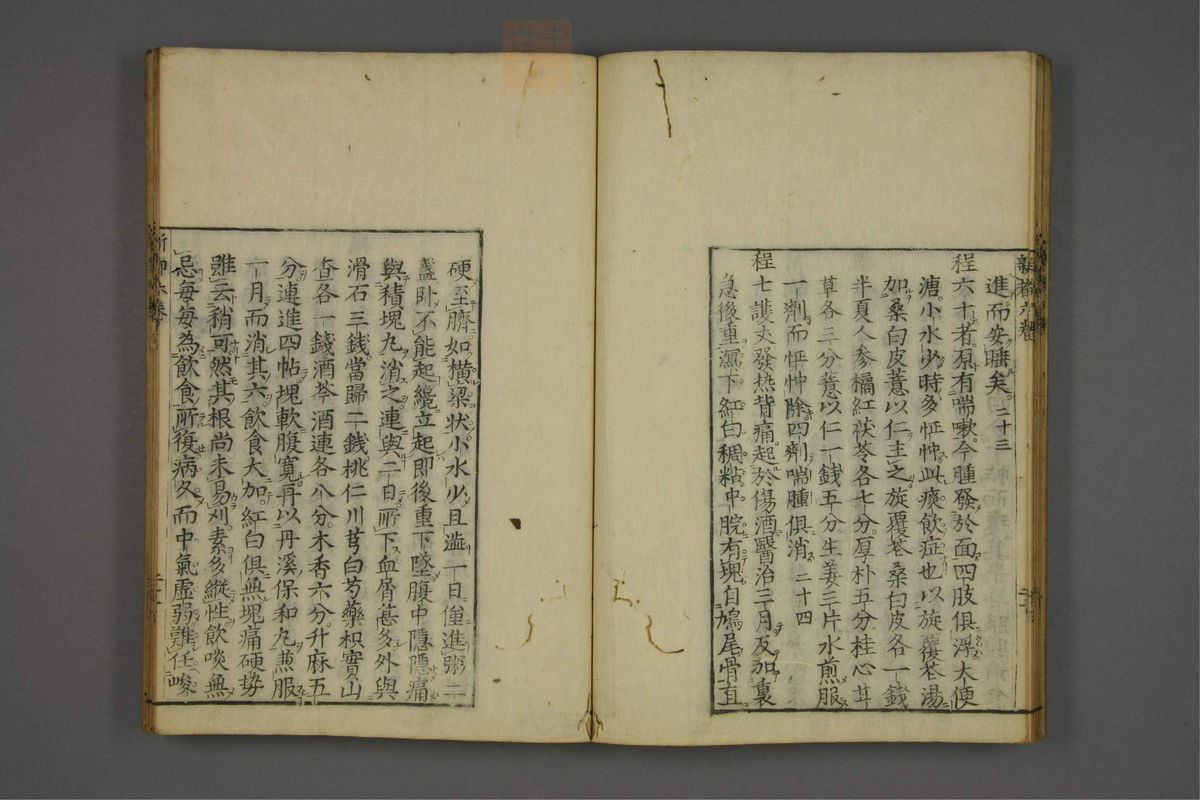 進而安睡矣。二十三
程六十者。原有喘嗽。今腫發於面四肢俱浮大便
溏。小水少時多怔忡此痰飲症也以旋覆花湯
加桑白皮薏以仁主之旋覆花桑白皮各一錢
半夏人參橘紅茯苓各七分。厚朴五分桂心甘
草各三分薏以仁一錢五分生姜三片水煎服
一劑而怔忡除四劑喘腫俱消 二十四
程七護丈發热背痛。起於傷酒醫治三月反加裏
急後重瀉下紅白稠粘中脘有塊自鳩尾骨直
硬至臍如橫梁状小水少且澁一日僅進粥二
盞卧不能起纔立起即後重下墜腹中隱隱痛
與積塊丸消之連與二日所下血屑甚多外與
滑石三錢當歸二錢桃仁川芎白芍藥枳實山
查各一錢酒芩酒連各八分。木香六分升麻五
分連進四帖塊軟腹寬再以丹溪保和丸兼服
一月而消其六飲食大加。紅白俱無塊痛硬勢
雖云稍可然其根尚未易刈素多縱性飲啖無
忌每每為飲食所復病久而中氣虛弱難任峻